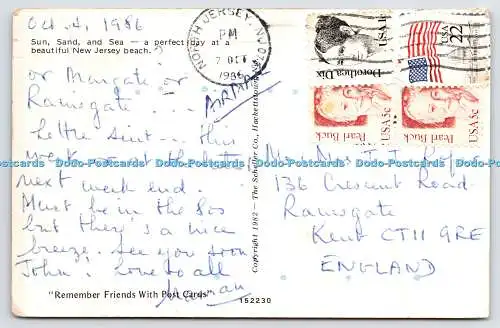 Oct 4, 1986
Sun, Sand, and Sea — a perfect day at a
beautiful New Jersey beach.
or Margate or
Ramsgate...
this
week
next week end.
Must be in the 80s
but there's a nice
breeze. See you soon
John! Love to all
"Remember Friends With Post Cards"
152230
Copyright 1982 — The
NORTH JERSEY, NJ
PM
7 OCT
1986
AIRMAIL
Dorothea Dix
USA 1c
22
USA
Pearl Buck
USA 5c
Pearl Buck
USA 5c
136 Crescent Road
Ramsgate
Kent CT11 9RE
ENGLAND
Dodo-Postcards Dodo-Postcards Dodo-Postcards Dodo-Postcards Dodo-Postcards